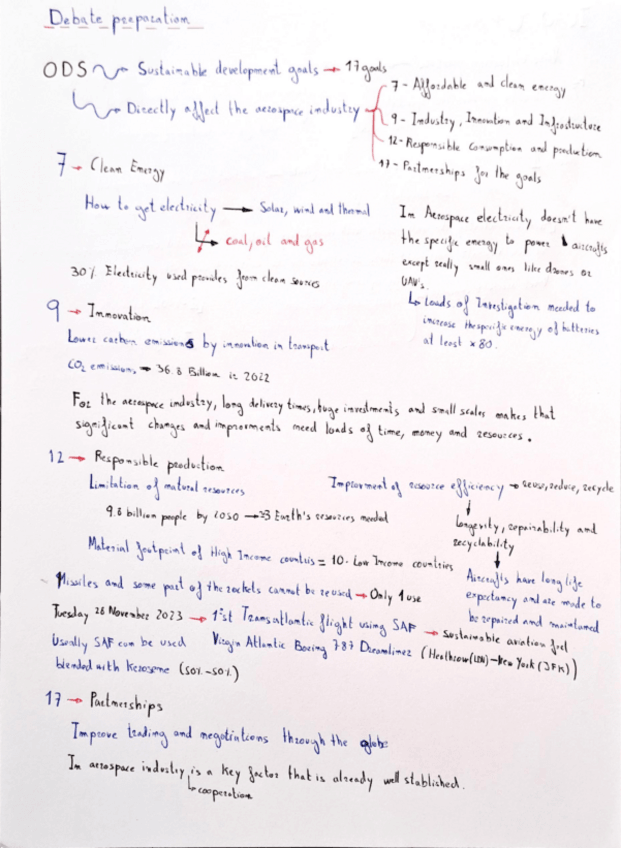 Debate preparation
ODS → Sustainable development goals → 17 goals
→ Directly affect the aerospace industry
7- Affordable and clean energy
9- Industry, Innovation and Infrastructure
12- Responsible consumption and production
17- Partnerships for the goals
7 → Clean Energy
How to get electricity → Solar, wind and thermal
→ coal, oil and gas
30% Electricity used provides from clean sources
In Aerospace electricity doesn't have
the specific energy to power aircrafts
except really small ones like drones or
UAV's.
↳ Loads of Investigation needed to
increase the specific energy of batteries
at least x 80.
9 → Innovation
Lower carbon emissions by innovation in transport
CO2 emissions → 36.8 Billion in 2022
For the aerospace industry, long delivery times, huge investments and small scales makes that
significant changes and improvments need loads of time, money and resources.
12 → Responsible production
Limitation of natural resources
9.8 billion people by 2050 → 3 Earth's resources needed
Material footprint of High Income countris = 10 · Low Income countries
Improvment of resource efficiency → reuse, reduce, recycle
Longevity, repairability and
recyclability
Aircrafts have long life
expectancy and are made to
be repaired and maintained
Missiles and some part of the rockets cannot be reused → Only 1 use
Tuesday 28 November 2023 → 1st Transatlantic flight using SAF → Sustainable aviation fuel
Usually SAF can be used
blended with Kerosene (50%-50%)
Virgin Atlantic Boeing 787 Dreamliner (Heathrow (LDN) - New York (JFK))
17 → Partnerships
Improve trading and negotiations through the globe
In aerospace industry is a key factor that is already well stablished.
↳ cooperation